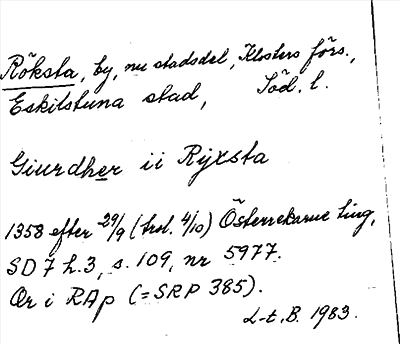 Röksta, by, nu stadsdel, Klosters förs.,
Eskilstuna stad, Söd. l.
Giurdher ii Ryxsta
1358 efter 29/9 (trol. 4/10) Österrekarne ting,
SD 7 h.3, s. 109, nr 5977.
Or i RAp (=SRP 385).
L-t, B. 1983.